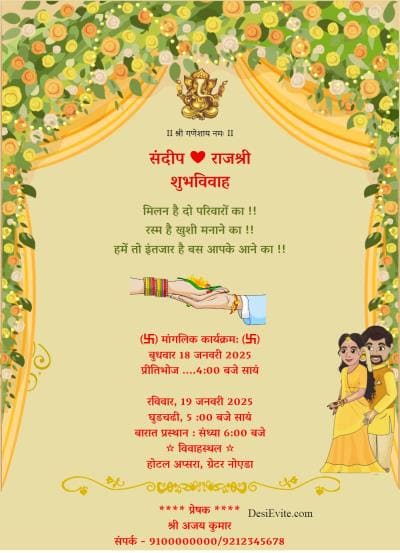 II श्री गणेशाय नमः II
संदीप ❤ राजश्री
शुभविवाह
मिलन है दो परिवारों का !!
रस्म है खुशी मनाने का !!
हमें तो इंतजार है बस आपके आने का !!
(卐) मांगलिक कार्यक्रम: (卐)
बुधवार 18 जनवरी 2025
प्रीतिभोज ....4:00 बजे सायं
रविवार, 19 जनवरी 2025
घुडचढी, 5 :00 बजे सायं
बारात प्रस्थान : संध्या 6:00 बजे
☆ विवाहस्थल ☆
होटल अप्सरा, ग्रेटर नोएडा
**** प्रेषक ****
श्री अजय कुमार
संपर्क - 9100000000/9212345678
DesiEvite.com